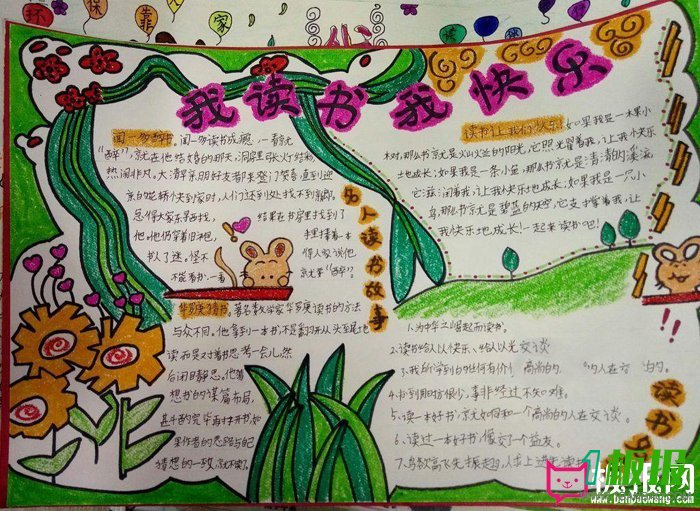 环 保 靠 大 家
我读书 我快乐
闻一多醉书。闻一多读书成瘾,一看就
"醉",就在他结婚的那天,洞房里张灯结彩,
热闹非凡。大清早亲朋好友都来登门贺喜,直到迎
亲的花轿快到家时,人们还到处找不到新郎。
急得大家东寻西找,
结果在书房里找到了
他。他仍穿着旧袍,
手里捧着一本
书入了迷。怪不
得人家说他
不能看书,一看
就要"醉"。
名人读书故事
华罗庚猜书。著名数学家华罗庚读书的方法
与众不同。他拿到一本书,不是翻开从头至尾地
读,而是对着书思考一会儿,然
后闭目静思。他猜
想书的谋篇布局,
斟酌完毕再打开书,如
果作者的思路与自己
猜想的一致,就不读了。
读书让我们快乐!如果我是一棵小
树,那么书就是火山火兰的阳光,它照耀着我,让我快乐
地成长;如果我是一条小鱼,那么书就是清清的溪流,
它滋润着我,让我快乐地成长;如果我是一只小
鸟,那么书就是蓝蓝的天空,它支撑着我,让
我快乐地成长!一起来读书吧!
1.为中华之崛起而读书。
2.读书给人以快乐、给人以光
3.我所学到的任何有价
4.书到用时方恨少,事非经过不知难。
5.读一本好书,就如同和一个高尚的人在交谈。
6.读过一本好书,像交了个益友。
7.鸟欲高飞先振翅,人求上进先读书
读书
板报网
www.banbaowang.com